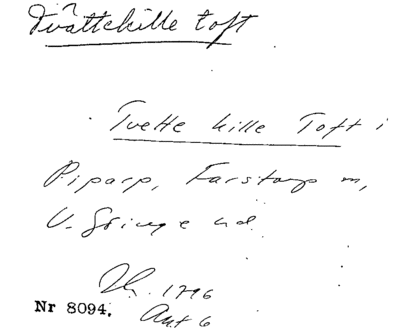 Tvättekille toft
Tvette kille Toft i
Piparp, Farstorp sn,
V. Göinge hd.
Lh. 1796
Nr 8094. Akt 6